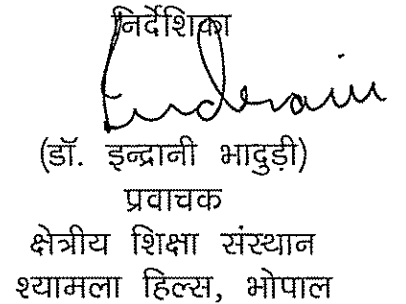 निर्देशिका
(डॉ. इन्द्रानी भादुड़ी)
प्रवाचक
क्षेत्रीय शिक्षा संस्थान
श्यामला हिल्स, भोपाल